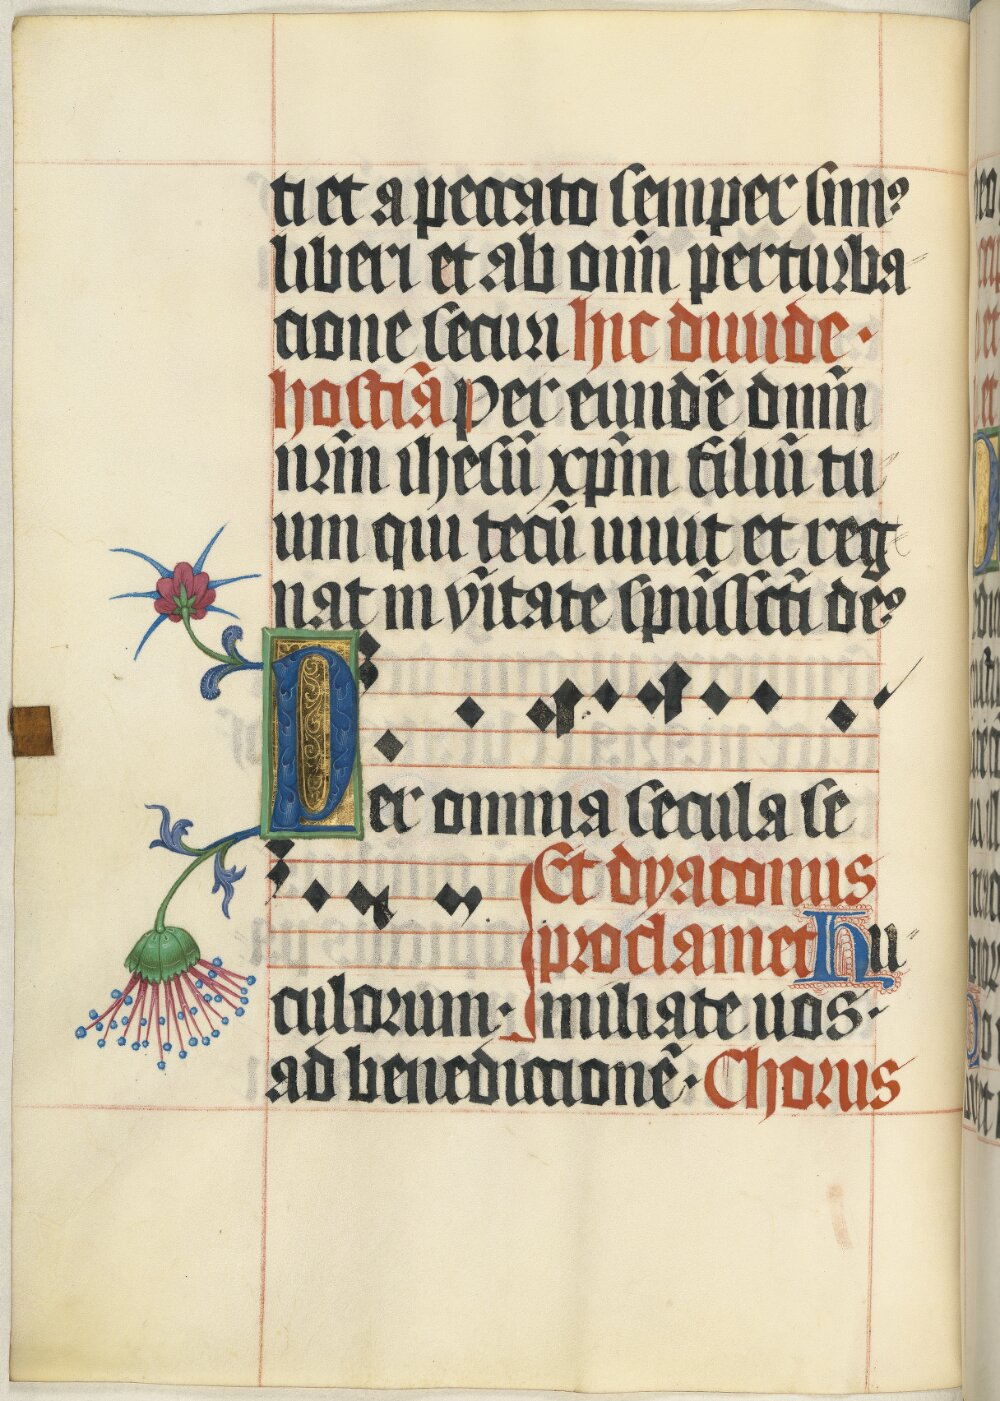 ti et a peccato semper sim⁹
liberi et ab om̄i perturba
cione securi hic diuide ·
hostiā Per eundē dn̄m
nr̄m ihesū xp̄m filiū tu
um qui tecū uiuit et reg
nat in vn̄itate sp̄ūssctī de⁹
Per omnia secula se
Et dyaconus
proclamet Hu
culorum · miliate uos ·
ad benedictionē · Chorus